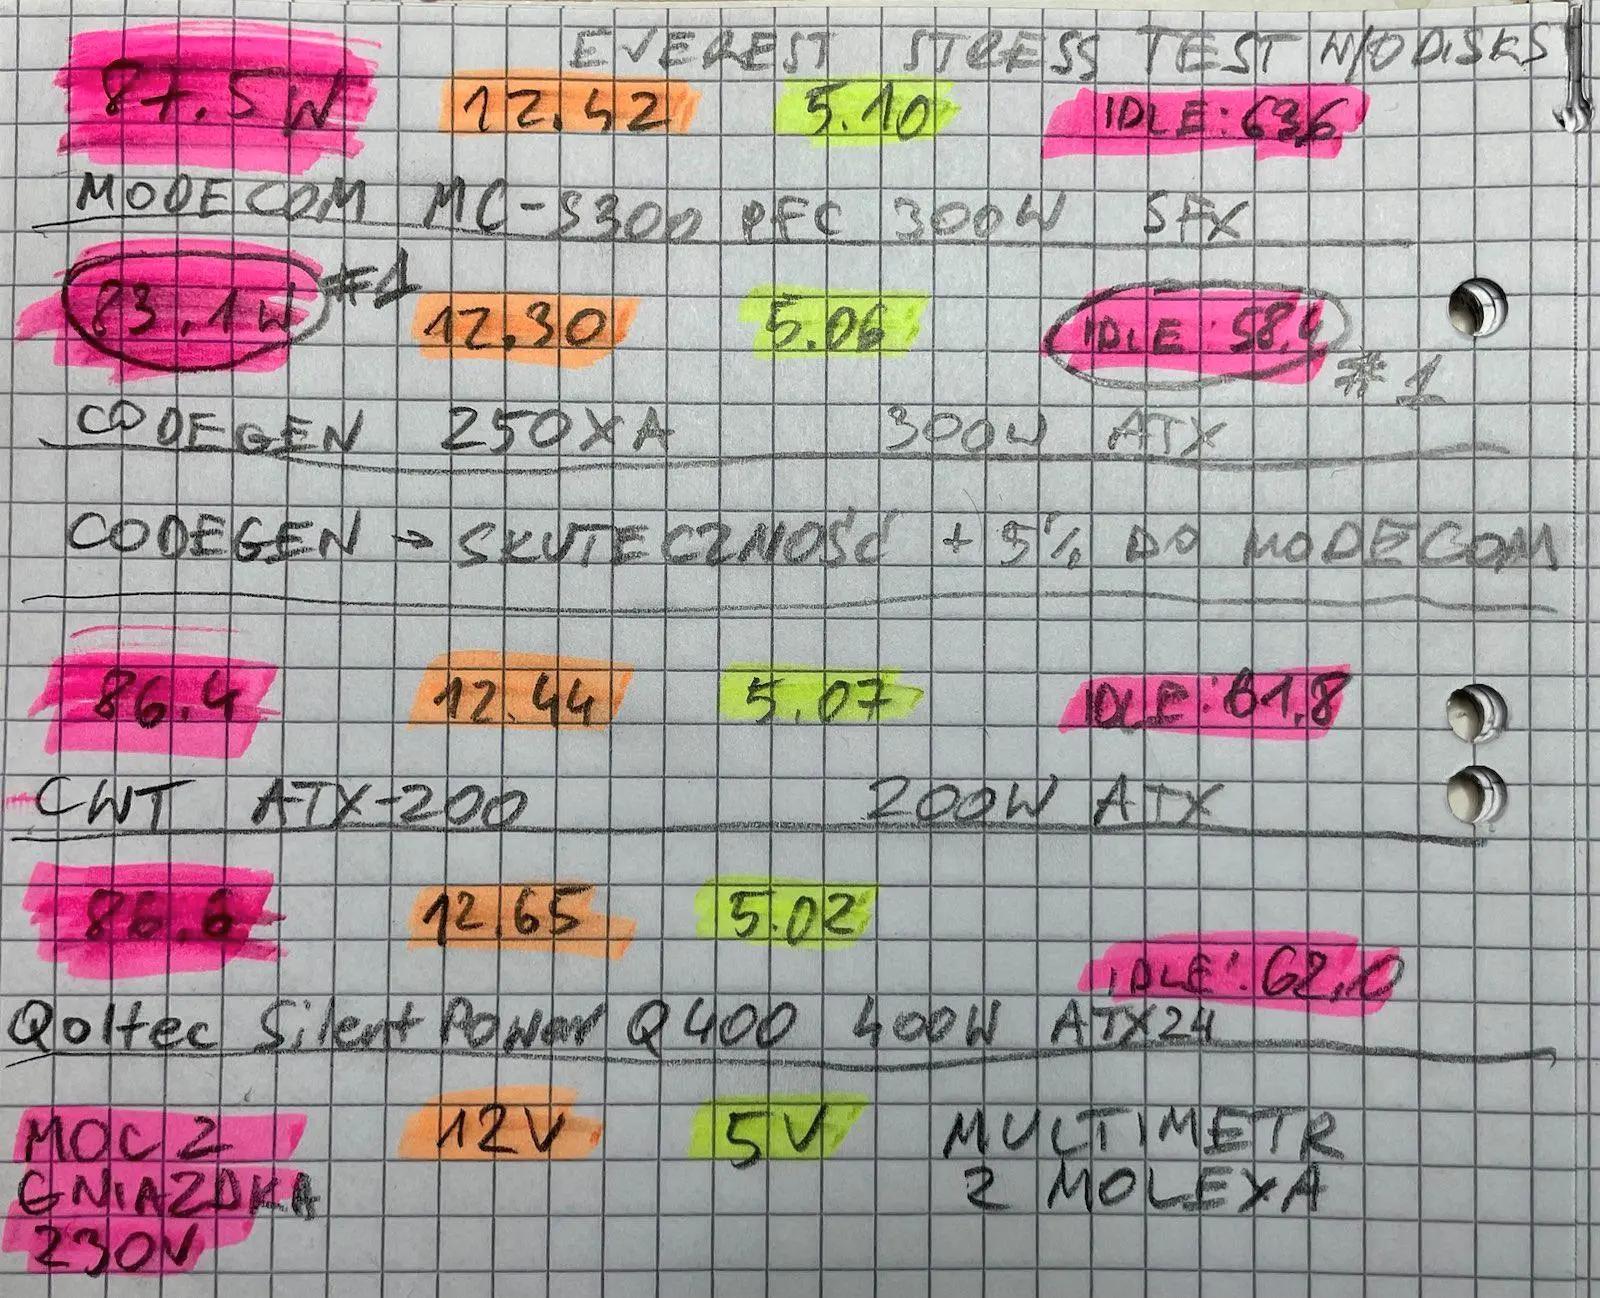 EVEREST STRESS TEST W/O DISKS
87.5W 12.42 5.10 IDLE: 63.6
MODECOM MC-S300 PFC 300W SFX
83.1W #1 12.30 5.06 IDLE: 58.4 #1
CODEGEN 250XA 300W ATX
CODEGEN → SKUTECZNOŚĆ + 5% DO MODECOM
86.4 12.44 5.07 IDLE: 61.8
CWT ATX-200 200W ATX
86.6 12.65 5.02
IDLE: 62.0
Qoltec Silent Power Q400 400W ATX24
MOC Z 12V 5V MULTIMETR
GNIAZDKA Z MOLEXA
230V